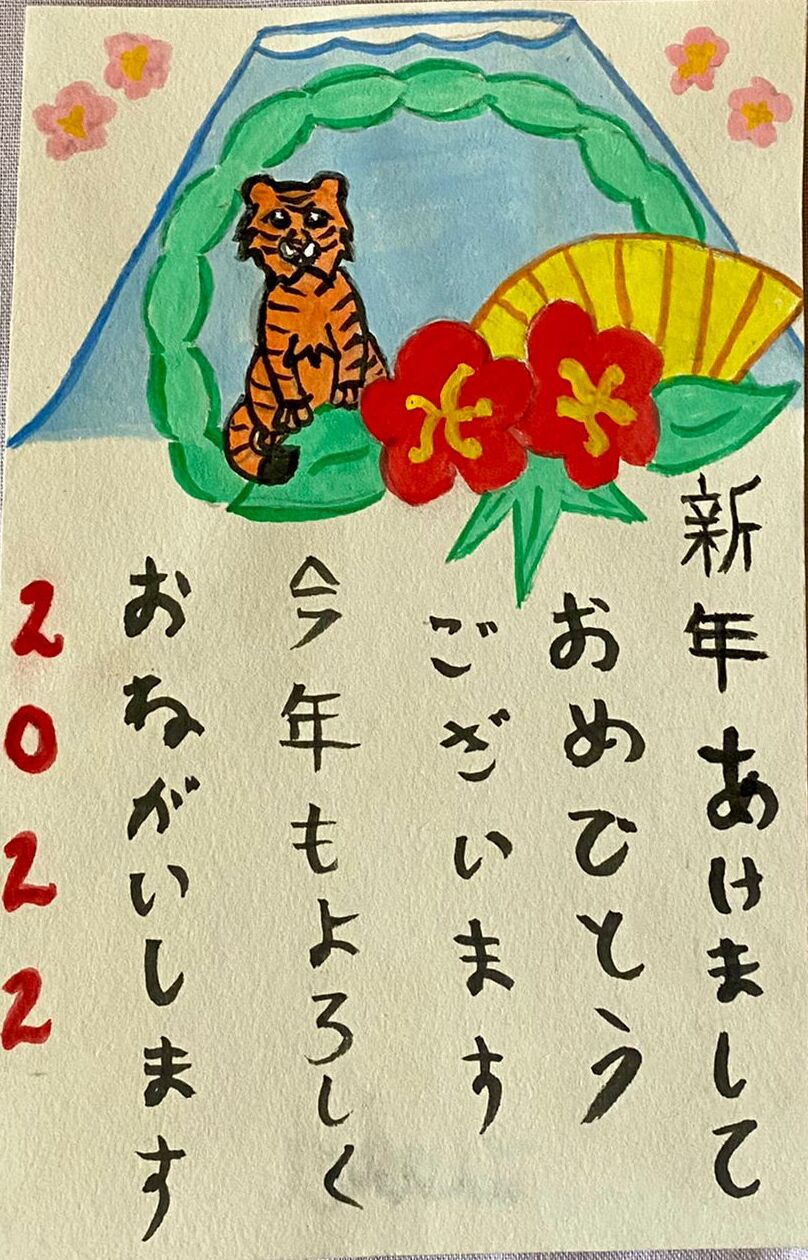 新年あけまして
おめでとう
ございます
今年もよろしく
おねがいします
2022